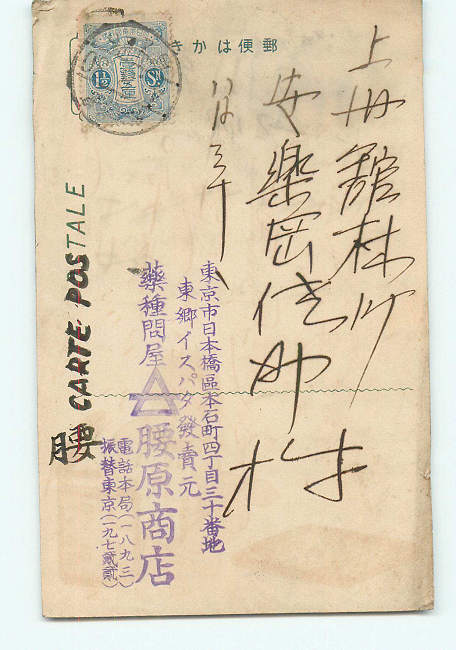 郵便はかき
1½ Sn
上州舘林町
安樂岡
東京市日本橋區本石町四丁目三十番地
東郷イスパタ發賣元
藥種問屋 腰原商店
電話本局(一八九三)
振替東京(一九七貳貳)
CARTE POSTALE
腰